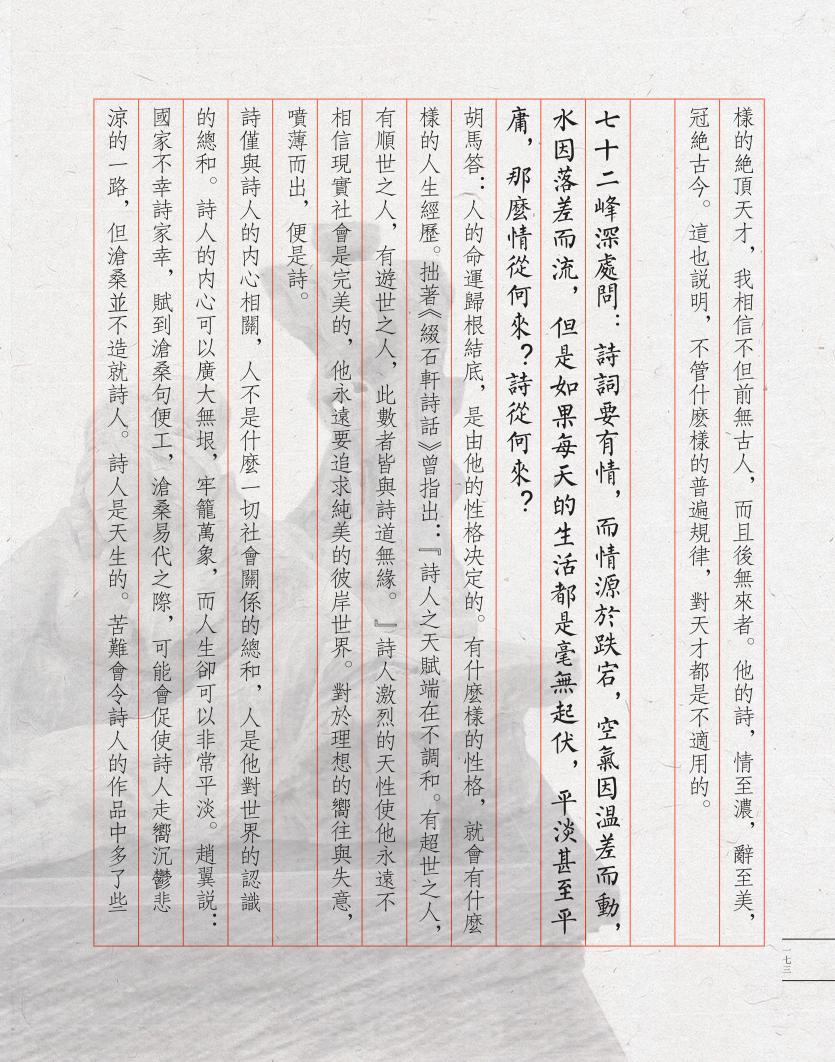 樣的絶頂天才，我相信不但前無古人，而且後無來者。他的詩，情至濃，辭至美，
冠絶古今。這也説明，不管什麽樣的普遍規律，對天才都是不適用的。
七十二峰深處問：詩詞要有情，而情源於跌宕，空氣因温差而動，
水因落差而流，但是如果每天的生活都是毫無起伏，平淡甚至平
庸，那麼情從何來？詩從何來？
胡馬答：人的命運歸根結底，是由他的性格决定的。有什麼樣的性格，就會有什麼
樣的人生經歷。拙著《綴石軒詩話》曾指出：『詩人之天賦端在不調和。有超世之人，
有順世之人，有遊世之人，此數者皆與詩道無緣。』詩人激烈的天性使他永遠不
相信現實社會是完美的，他永遠要追求純美的彼岸世界。對於理想的嚮往與失意，
噴薄而出，便是詩。
詩僅與詩人的内心相關，人不是什麼一切社會關係的總和，人是他對世界的認識
的總和。詩人的内心可以廣大無垠，牢籠萬象，而人生卻可以非常平淡。趙翼説：
國家不幸詩家幸，賦到滄桑句便工，滄桑易代之際，可能會促使詩人走嚮沉鬱悲
涼的一路，但滄桑並不造就詩人。詩人是天生的。苦難會令詩人的作品中多了些
一七三